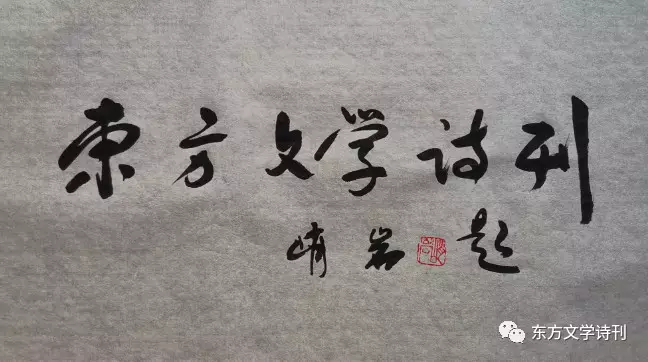 东方文学诗刊
峭岩题
东方文学诗刊